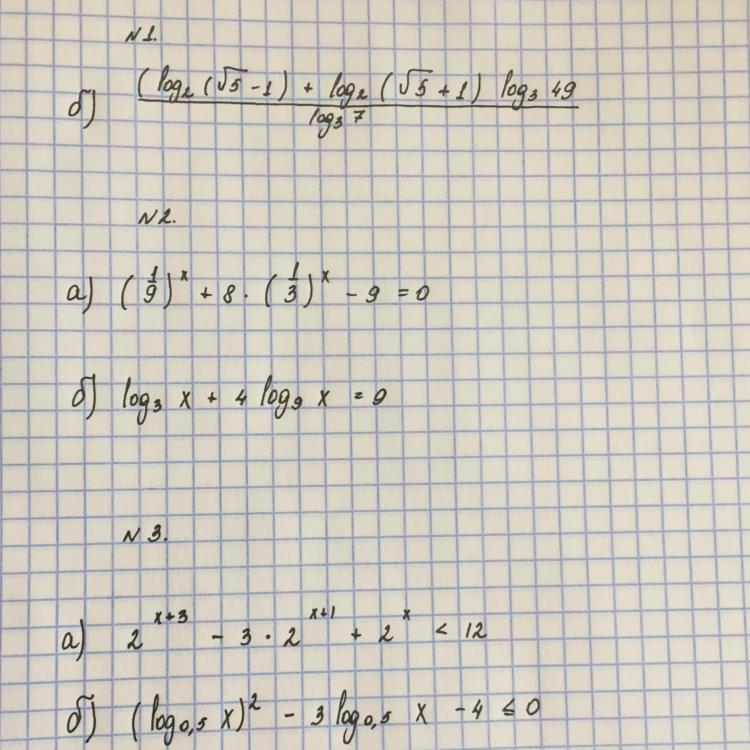 N1.
б) ((log₂(√5 -1) + log₂(√5+1) log₃ 49) / (log₃ 7)
N2.
а) (1/9)ˣ + 8 · (1/3)ˣ - 9 = 0
б) log₃ x + 4 log₉ x = 9
N3.
а) 2ˣ⁺³ - 3 · 2ˣ⁺¹ + 2ˣ < 12
б) (log₀,₅ x)² - 3 log₀,₅ x - 4 ≤ 0